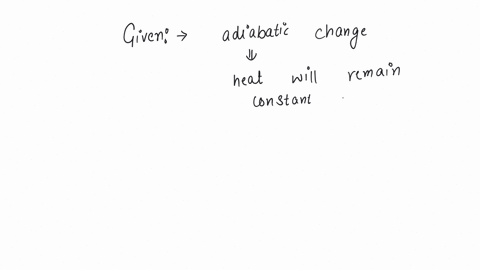 Given: → adiabatic change
⇓
heat will remain
constant